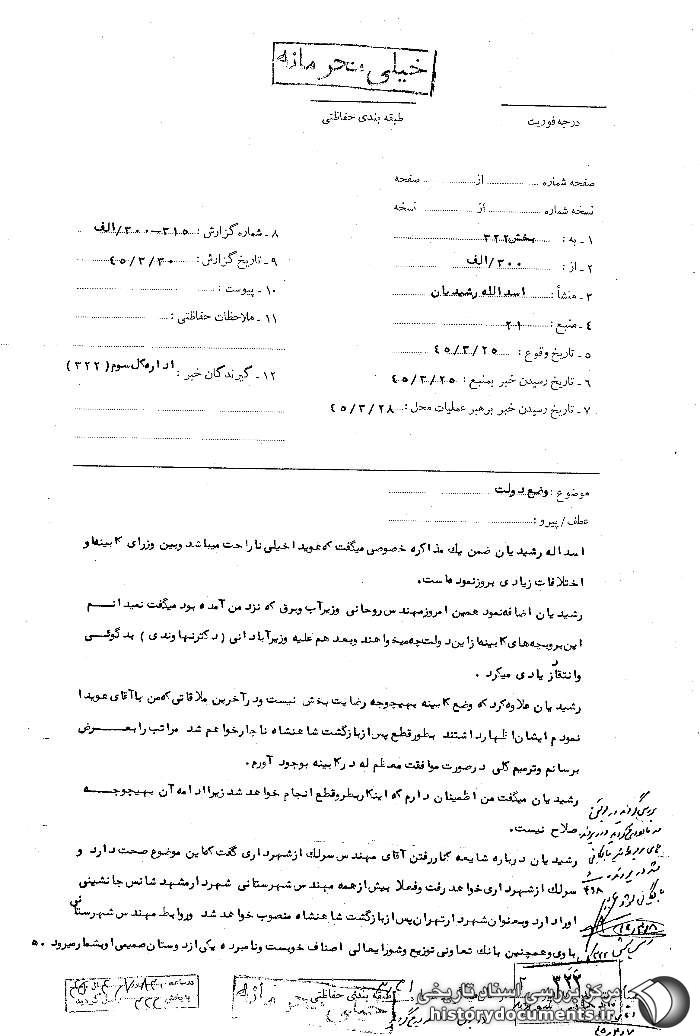 خیلی محرمانه
طبقه بندی حفاظتی
درجه فوریت
صفحه شماره ... از ... صفحه
نسخه شماره ... از ... نسخه
۱ - به : بخش ۳۲۲
۲ - از : ۳۰۰/الف
۳ - منشأ : اسدالله رشیدیان
۴ - منبع : ۲۱
۵ - تاریخ وقوع : ۴۵/۳/۲۵
۶ - تاریخ رسیدن خبر بمنبع : ۴۵/۳/۲۵
۷ - تاریخ رسیدن خبر برهبر عملیات محل : ۴۵/۳/۲۸
۸ - شماره گزارش : ۳۱۵-۳۰۰/الف
۹ - تاریخ گزارش : ۴۵/۳/۳۰
۱۰ - پیوست :
۱۱ - ملاحظات حفاظتی :
۱۲ - گیرندگان خبر : اداره کل سوم (۳۲۲)
موضوع : وضع دولت
عطف / پیرو :
اسداله رشیدیان ضمن یك مذاکره خصوصی میگفت که هویدا خیلی ناراحت میباشد وبین وزرای کابینه او
اختلافات زیادی بروز نموده است.
رشیدیان اضافه نمود همین امروز مهندس روحانی وزیر آب وبرق که نزد من آمده بود میگفت نمیدانم
این بروبچه های کابینه از این دولت چه میخواهند وبعد هم علیه وزیر آبادانی (دکتر نهاوندی) بدگوئی
وانتقاد زیادی میکرد.
رشیدیان علاوه کرد که وضع کابینه بهیچوجه رضایت بخش نیست ودر آخرین ملاقاتی که من با آقای هویدا
نمودم ایشان اظهار داشتند بطور قطع پس از بازگشت شاهنشاه ناچار خواهم شد مراتب را بعرض
برسانم وترمیم کلی در صورت موافقت معظم له در کابینه بوجود آورم.
رشیدیان میگفت من اطمینان دارم که اینکار بطور قطع انجام خواهد شد زیرا ادامه آن بهیچوجه
صلاح نیست.
رشیدیان درباره شایعه کنار رفتن آقای مهندس سرلك از شهرداری گفت که این موضوع صحت دارد و
سرلك از شهرداری خواهد رفت وفعلا بیش از همه مهندس شهرستانی شهردار مشهد شانس جانشینی
اورا دارد وبعنوان شهردار تهران پس از بازگشت شاهنشاه منصوب خواهد شد وروابط مهندس شهرستانی
با وی وهمچنین بانك تعاونی توزیع وشورایعالی اصناف خوبست ونامبرده یکی از دوستان صمیمی او بشمار میرود.
۳۲۲
طبقه بندی حفاظتی
خیلی محرمانه
مرکز بررسی اسناد تاریخی
historydocuments.ir